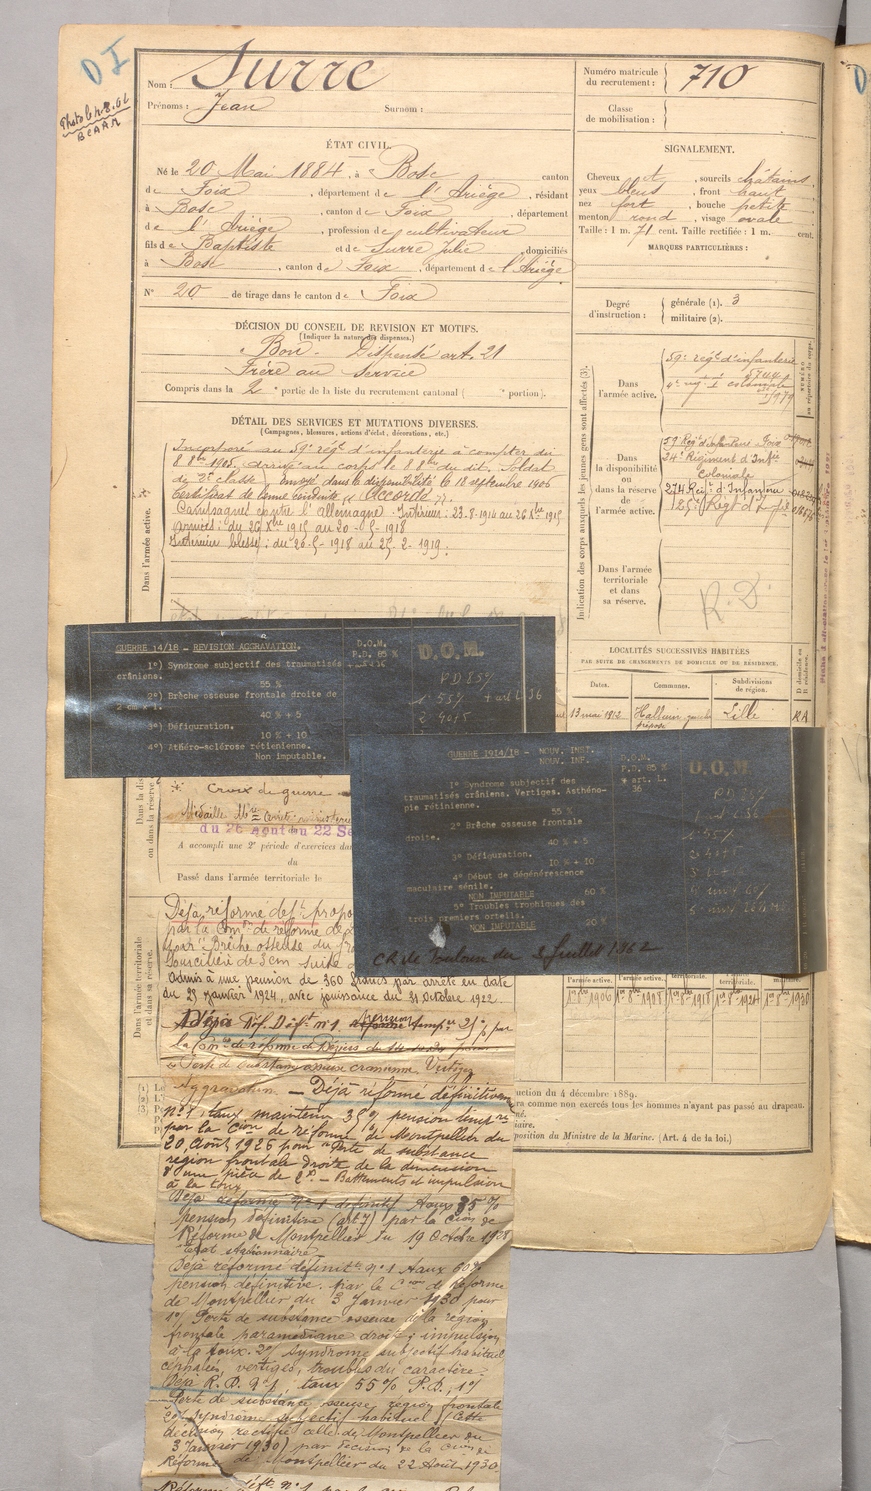 D I
Photo le 4.8.61
BCAAM
Nom : Surre
Prénoms : Jean Surnom :
Numéro matricule du recrutement : 710
Classe de mobilisation :
ÉTAT CIVIL.
Né le 20 Mai 1884, à Bosc canton
de Foix, département de l'Ariège, résidant
à Bosc, canton de Foix, département
de l'Ariège, profession de cultivateur
fils de Baptiste et de Surre Julie, domiciliés
à Bosc, canton de Foix, département de l'Ariège
N° 20 de tirage dans le canton de Foix
SIGNALEMENT.
Cheveux et, sourcils châtains,
yeux bleus, front haut,
nez fort, bouche petite,
menton rond, visage ovale
Taille : 1 m. 71 cent. Taille rectifiée : 1 m. cent.
MARQUES PARTICULIÈRES :
Degré d'instruction : générale (1). 3
militaire (2).
DÉCISION DU CONSEIL DE REVISION ET MOTIFS.
(Indiquer la nature des dispenses.)
Bon. Dispensé art. 21
Frère au service
Compris dans la 2e partie de la liste du recrutement cantonal ( portion).
DÉTAIL DES SERVICES ET MUTATIONS DIVERSES.
(Campagnes, blessures, actions d'éclat, décorations, etc.)
Dans l'armée active.
Incorporé au 59e régt d'infanterie à compter du
8 8bre 1905, arrivé au corps le 8 8bre du dit. Soldat
de 2e classe envoyé dans la disponibilité le 18 septembre 1906
Certificat de bonne conduite "Accordé".
Campagnes contre l'Allemagne - Intérieur : 23-8-1914 au 26 Xbre 1915
Armées : du 26 Xbre 1915 au 20-5-1918
Intérieur blessé : du 20-5-1918 au 25-2-1919.
Indication des corps auxquels les jeunes gens sont affectés (3).
NUMÉRO au répertoire du corps.
Dans l'armée active.
59e régt d'infanterie
5744
Dans la disponibilité ou dans la réserve de l'armée active.
59 Régt d'Infanterie Foix
24e Régiment d'Infie
Coloniale
274 Régt d'Infanterie
Dans l'armée territoriale et dans sa réserve.
R.D.
LOCALITÉS SUCCESSIVES HABITÉES
PAR SUITE DE CHANGEMENTS DE DOMICILE OU DE RÉSIDENCE.
Dates. Communes. Subdivisions de région. D domicile ou R résidence.
13 mai 1912 Halluin Lille
GUERRE 14/18 - REVISION AGGRAVATION.
1°) Syndrome subjectif des traumatisés
crâniens.
55 %
2°) Brèche osseuse frontale droite de
2 cm x 1.
40 % + 5
3°) Défiguration.
10 % + 10
4°) Athéro-sclérose rétienienne.
Non imputable.
D.O.M.
P.D. 85 %
D.O.M.
PD 85%
1° 55% + art L.36
2 40+5
GUERRE 1914/18 - NOUV. INST.
NOUV. INF.
1° Syndrome subjectif des
traumatisés crâniens. Vertiges. Asthéno-
pie rétinienne.
55 %
2° Brèche osseuse frontale
droite.
40 % + 5
3° Défiguration.
10 % + 10
4° Début de dégénérescence
maculaire sénile.
NON IMPUTABLE 60 %
5° Troubles trophiques des
trois premiers orteils.
NON IMPUTABLE 20 %
D.O.M.
P.D. 85 %
+ art. L.
36
D.O.M.
CR de Toulouse du 3 Juillet 1962
Croix de guerre
Médaille Mre
du 26 Août au 22 Se
A accompli une 2e période d'exercices dans
du
Passé dans l'armée territoriale le
Dans l'armée territoriale et dans sa réserve.
Déjà réformé déft propo
par la Comon de réforme de
pour "Brèche osseuse du
sourcilière de 3cm suite
Admis à une pension de 360 francs par arrêté en date
du 29 Janvier 1924, avec jouissance du 31 Octobre 1922.
l'armée active.
territoriale.
1er 8bre 1906 1er 8bre 1918 1er 8bre 1930
uction du 4 décembre 1889.
ra comme non exercés tous les hommes n'ayant pas passé au drapeau.
position du Ministre de la Marine. (Art. 4 de la loi.)
Déjà Réf. Déft n°1
la Comon de réforme de Béziers
Perte de substance osseuse cranienne. Vertiges
Aggravation - Déjà réformé définitivemt
n°1, taux maintenu 35% pension tempre
par la Cion de réforme de Montpellier du
20 Août 1926 pour "Perte de substance
région frontale droite de la dimension
d'une pièce de 2f. - Battements et impulsion
à la toux
Déjà réformé n°1 définitif taux 35%
pension définitive (art 7) par la Cion de
Réforme de Montpellier du 19 Octobre 1928
"Etat stationnaire
Déjà réformé définitt n°1 taux 60%
pension définitive, par la Cion de Réforme
de Montpellier du 3 Janvier 1930 pour
1°/ Perte de substance osseuse de la région
frontale paramédiane droite; impulsion
à la toux. 2°/ Syndrome subjectif habituel
céphalées, vertiges, troubles du caractère.
Déjà R.D. n°1, taux 55% P.D., 1°/
Perte de substance osseuse région frontale
2°/ Syndrome subjectif habituel (Cette
décision rectifie celle de Montpellier du
3 Janvier 1930) par décision de la Cion de
Réforme de Montpellier du 22 Août 1930.